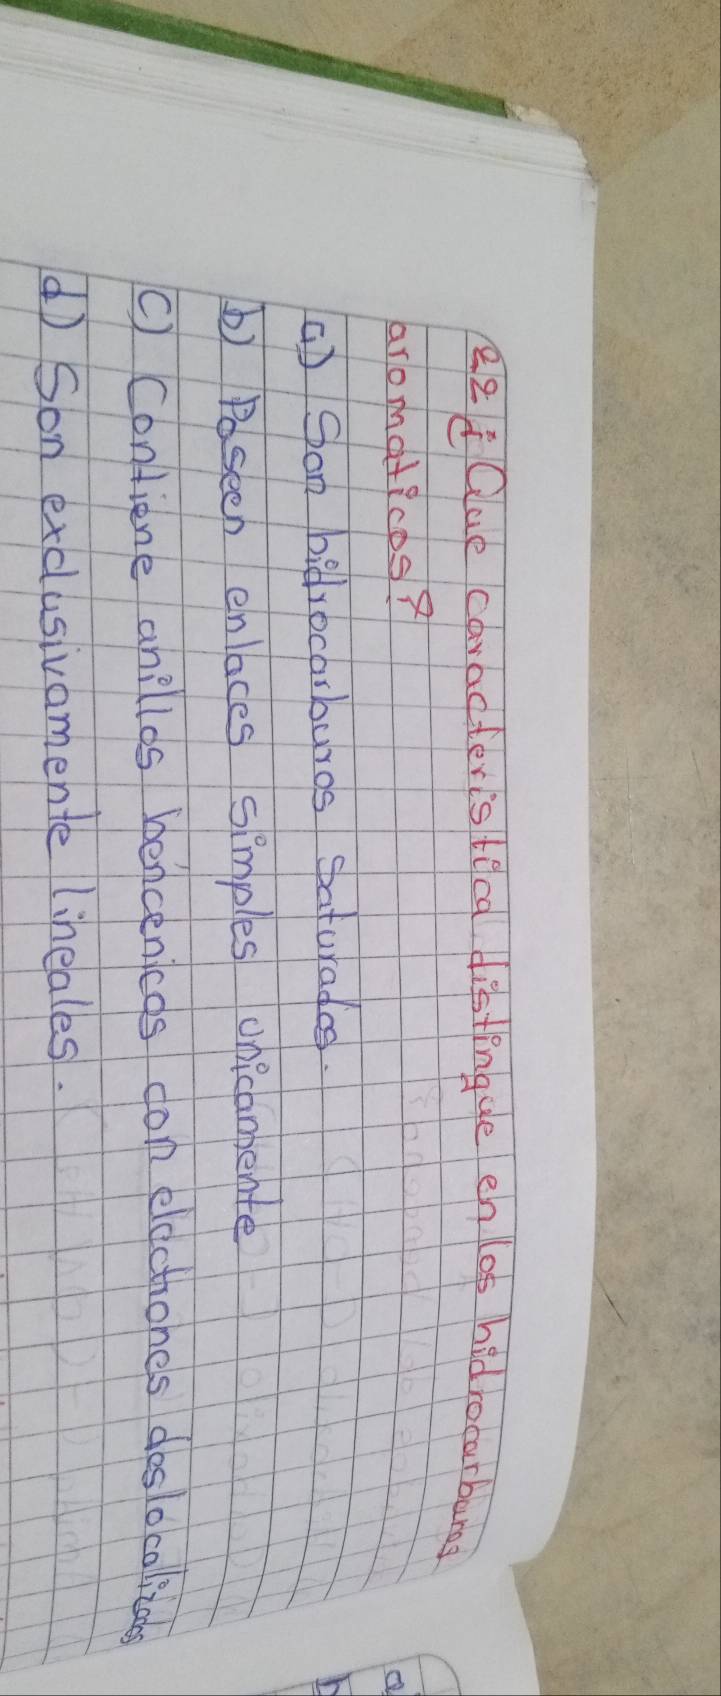 22 ¿Que caracteristica distingue en los hidrocarburos
aromaticos?
a) Son hidrocarburos saturados.
b) Poseen enlaces simples unicamente
c) Contiene anillos bencenicos con electrones deslocalizados
d) Son exclusivamente lineales.